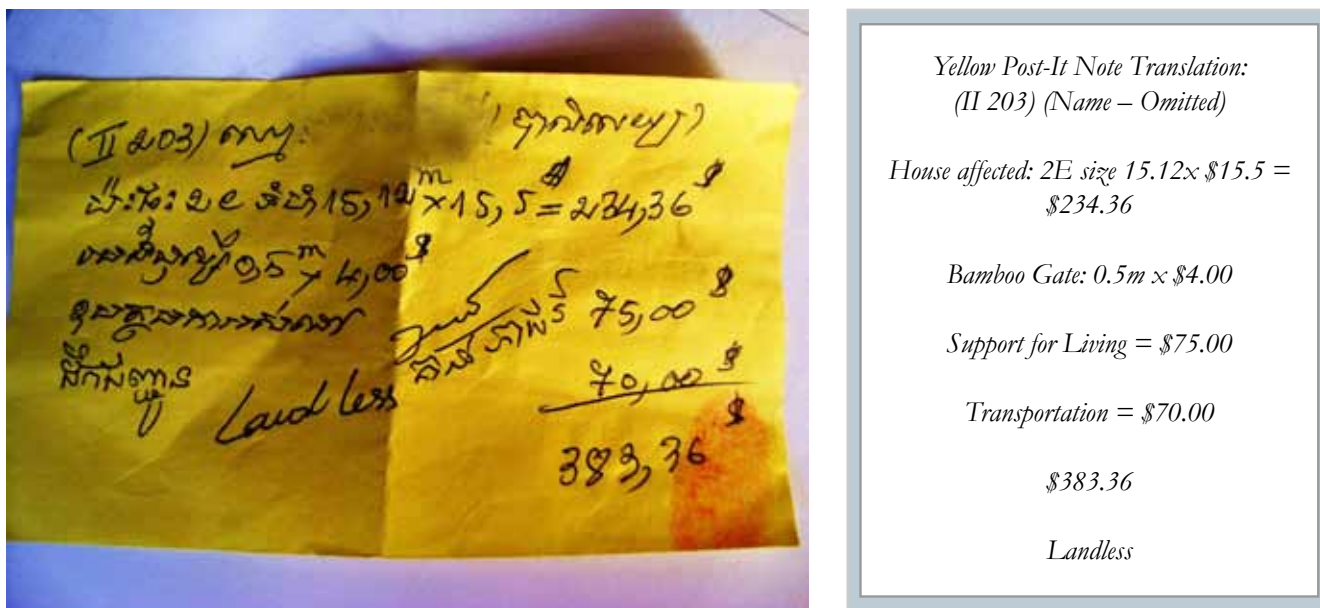 (II ២០៣) ឈ្មោះ
ប៉ះផ្ទះ 2E ទំហំ 15,12m x 15,5$ = 234,36$
របងឫស្សី 0,5m x 4,00$
75,00$
ដឹកជញ្ជូន
70,00$
Land less
383,36$
Yellow Post-It Note Translation:
(II 203) (Name – Omitted)
House affected: 2E size 15.12x $15.5 =
$234.36
Bamboo Gate: 0.5m x $4.00
Support for Living = $75.00
Transportation = $70.00
$383.36
Landless